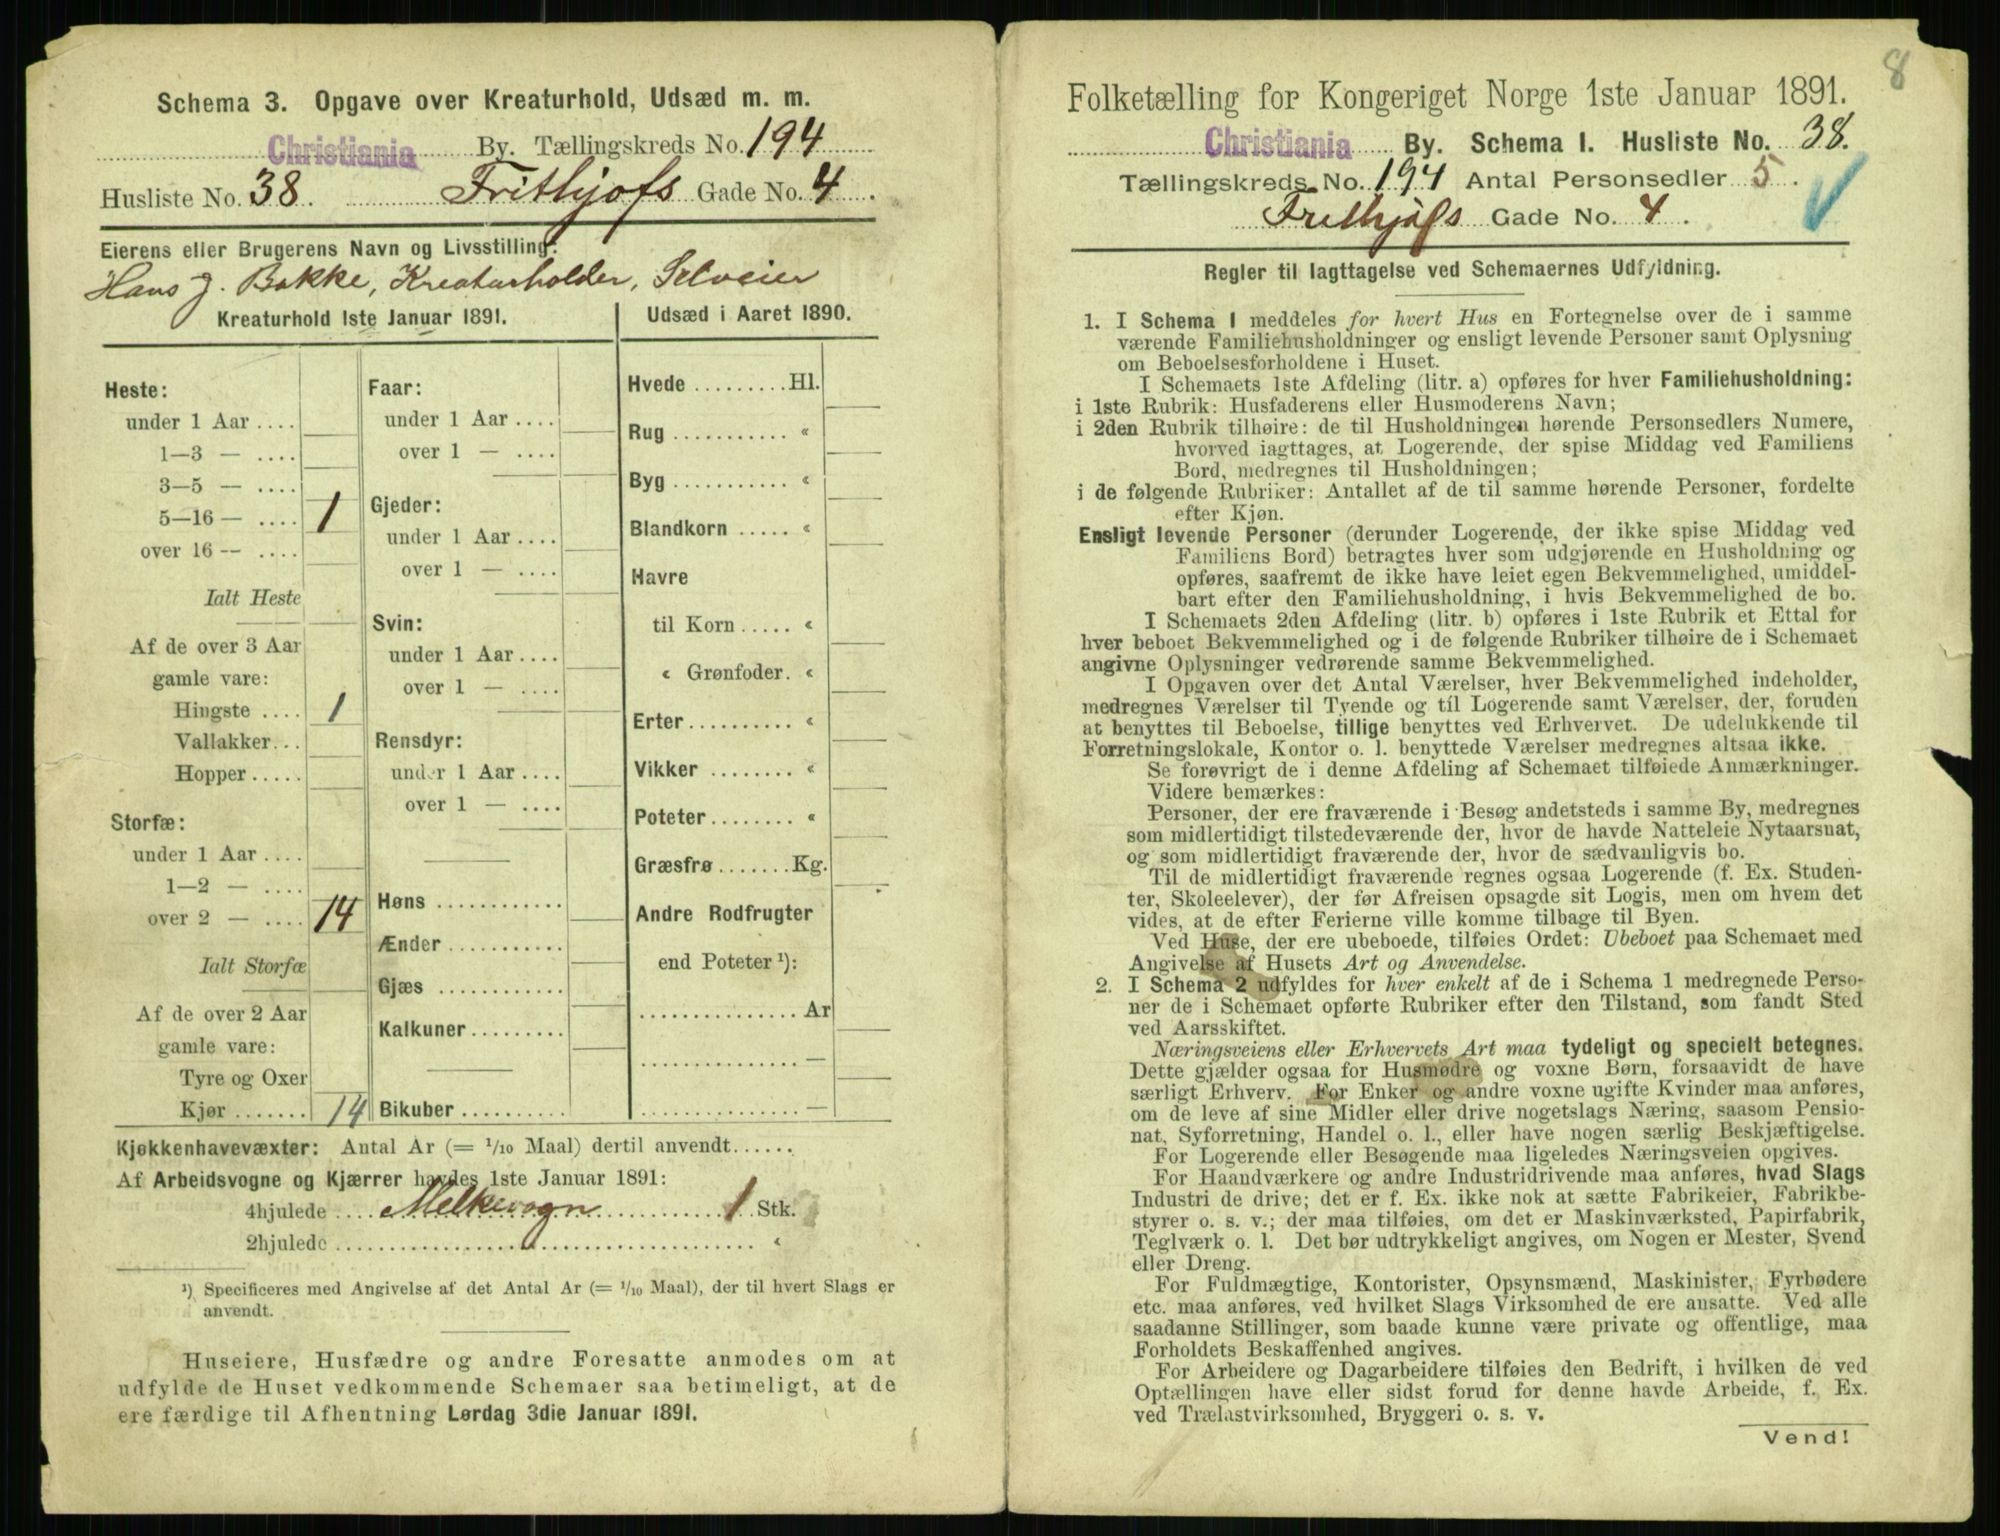 Schema 3. Opgave over Kreaturhold, Udsæd m. m.
Christiania By. Tællingskreds No. 194
Husliste No. 38. Frithjofs Gade No. 4.
Eierens eller Brugerens Navn og Livsstilling:
Hans J. Bakke, Kreaturholder, Selveier
Kreaturhold 1ste Januar 1891.
Heste:
under 1 Aar ....
1—3 — ....
3—5 — ....
5—16 — .... 1
over 16 — ....
Ialt Heste
Af de over 3 Aar
gamle vare:
Hingste .... 1
Vallakker...
Hopper.....
Storfæ:
under 1 Aar ....
1—2 — ....
over 2 — .... 14
Ialt Storfæ
Af de over 2 Aar
gamle vare:
Tyre og Oxer
Kjør ....... 14
Faar:
under 1 Aar ....
over 1 — ....
Gjeder:
under 1 Aar ....
over 1 — ....
Svin:
under 1 Aar ....
over 1 — ....
Rensdyr:
under 1 Aar ....
over 1 — ....
Høns ............
Ænder ...........
Gjæs ............
Kalkuner .........
Bikuber ..........
Udsæd i Aaret 1890.
Hvede .........Hl.
Rug ........... «
Byg ........... «
Blandkorn ..... «
Havre
til Korn ..... «
« Grønfoder. «
Erter .......... «
Vikker ........ «
Poteter ........ «
Græsfrø .......Kg.
Andre Rodfrugter
end Poteter ¹):
............... Ar
............... —
............... —
Kjøkkenhavevæxter: Antal Ar (= 1/10 Maal) dertil anvendt......
Af Arbeidsvogne og Kjærrer havdes 1ste Januar 1891:
4hjulede .... Melkevogn ........ 1 Stk.
2hjulede ........................ «
¹) Specificeres med Angivelse af det Antal Ar (= 1/10 Maal), der til hvert Slags er
anvendt.
Huseiere, Husfædre og andre Foresatte anmodes om at
udfylde de Huset vedkommende Schemaer saa betimeligt, at de
ere færdige til Afhentning Lørdag 3die Januar 1891.
8
Folketælling for Kongeriget Norge 1ste Januar 1891.
Christiania By. Schema I. Husliste No. 38.
Tællingskreds No. 194 Antal Personsedler 5.
Frithjofs Gade No. 4.
Regler til Iagttagelse ved Schemaernes Udfyldning.
1. I Schema 1 meddeles for hvert Hus en Fortegnelse over de i samme
værende Familiehusholdninger og ensligt levende Personer samt Oplysning
om Beboelsesforholdene i Huset.
I Schemaets 1ste Afdeling (litr. a) opføres for hver Familiehusholdning:
i 1ste Rubrik: Husfaderens eller Husmoderens Navn;
i 2den Rubrik tilhøire: de til Husholdningen hørende Personsedlers Numere,
hvorved iagttages, at Logerende, der spise Middag ved Familiens
Bord, medregnes til Husholdningen;
i de følgende Rubriker: Antallet af de til samme hørende Personer, fordelte
efter Kjøn.
Ensligt levende Personer (derunder Logerende, der ikke spise Middag ved
Familiens Bord) betragtes hver som udgjørende en Husholdning og
opføres, saafremt de ikke have leiet egen Bekvemmelighed, umiddel-
bart efter den Familiehusholdning, i hvis Bekvemmelighed de bo.
I Schemaets 2den Afdeling (litr. b) opføres i 1ste Rubrik et Ettal for
hver beboet Bekvemmelighed og i de følgende Rubriker tilhøire de i Schemaet
angivne Oplysninger vedrørende samme Bekvemmelighed.
I Opgaven over det Antal Værelser, hver Bekvemmelighed indeholder,
medregnes Værelser til Tyende og til Logerende samt Værelser, der, foruden
at benyttes til Beboelse, tillige benyttes ved Erhvervet. De udelukkende til
Forretningslokale, Kontor o. l. benyttede Værelser medregnes altsaa ikke.
Se forøvrigt de i denne Afdeling af Schemaet tilføiede Anmærkninger.
Videre bemærkes:
Personer, der ere fraværende i Besøg andetsteds i samme By, medregnes
som midlertidigt tilstedeværende der, hvor de havde Natteleie Nytaarsnat,
og som midlertidigt fraværende der, hvor de sædvanligvis bo.
Til de midlertidigt fraværende regnes ogsaa Logerende (f. Ex. Studen-
ter, Skoleelever), der før Afreisen opsagde sit Logis, men om hvem det
vides, at de efter Ferierne ville komme tilbage til Byen.
Ved Huse, der ere ubeboede, tilføies Ordet: Ubeboet paa Schemaet med
Angivelse af Husets Art og Anvendelse.
2. I Schema 2 udfyldes for hver enkelt af de i Schema 1 medregnede Perso-
ner de i Schemaet opførte Rubriker efter den Tilstand, som fandt Sted
ved Aarsskiftet.
Næringsveiens eller Erhvervets Art maa tydeligt og specielt betegnes.
Dette gjælder ogsaa for Husmødre og voxne Børn, forsaavidt de have
særligt Erhverv. For Enker og andre voxne ugifte Kvinder maa anføres,
om de leve af sine Midler eller drive nogetslags Næring, saasom Pensio-
nat, Syforretning, Handel o. l., eller have nogen særlig Beskjæftigelse.
For Logerende eller Besøgende maa ligeledes Næringsveien opgives.
For Haandværkere og andre Industridrivende maa anføres, hvad Slags
Industri de drive; det er f. Ex. ikke nok at sætte Fabrikeier, Fabrikbe-
styrer o. s. v.; der maa tilføies, om det er Maskinværksted, Papirfabrik,
Teglværk o. l. Det bør udtrykkeligt angives, om Nogen er Mester, Svend
eller Dreng.
For Fuldmægtige, Kontorister, Opsynsmænd, Maskinister, Fyrbødere
etc. maa anføres, ved hvilket Slags Virksomhed de ere ansatte. Ved alle
saadanne Stillinger, som baade kunne være private og offentlige, maa
Forholdets Beskaffenhed angives.
For Arbeidere og Dagarbeidere tilføies den Bedrift, i hvilken de ved
Optællingen have eller sidst forud for denne havde Arbeide, f. Ex.
ved Trælastvirksomhed, Bryggeri o. s. v.
Vend!